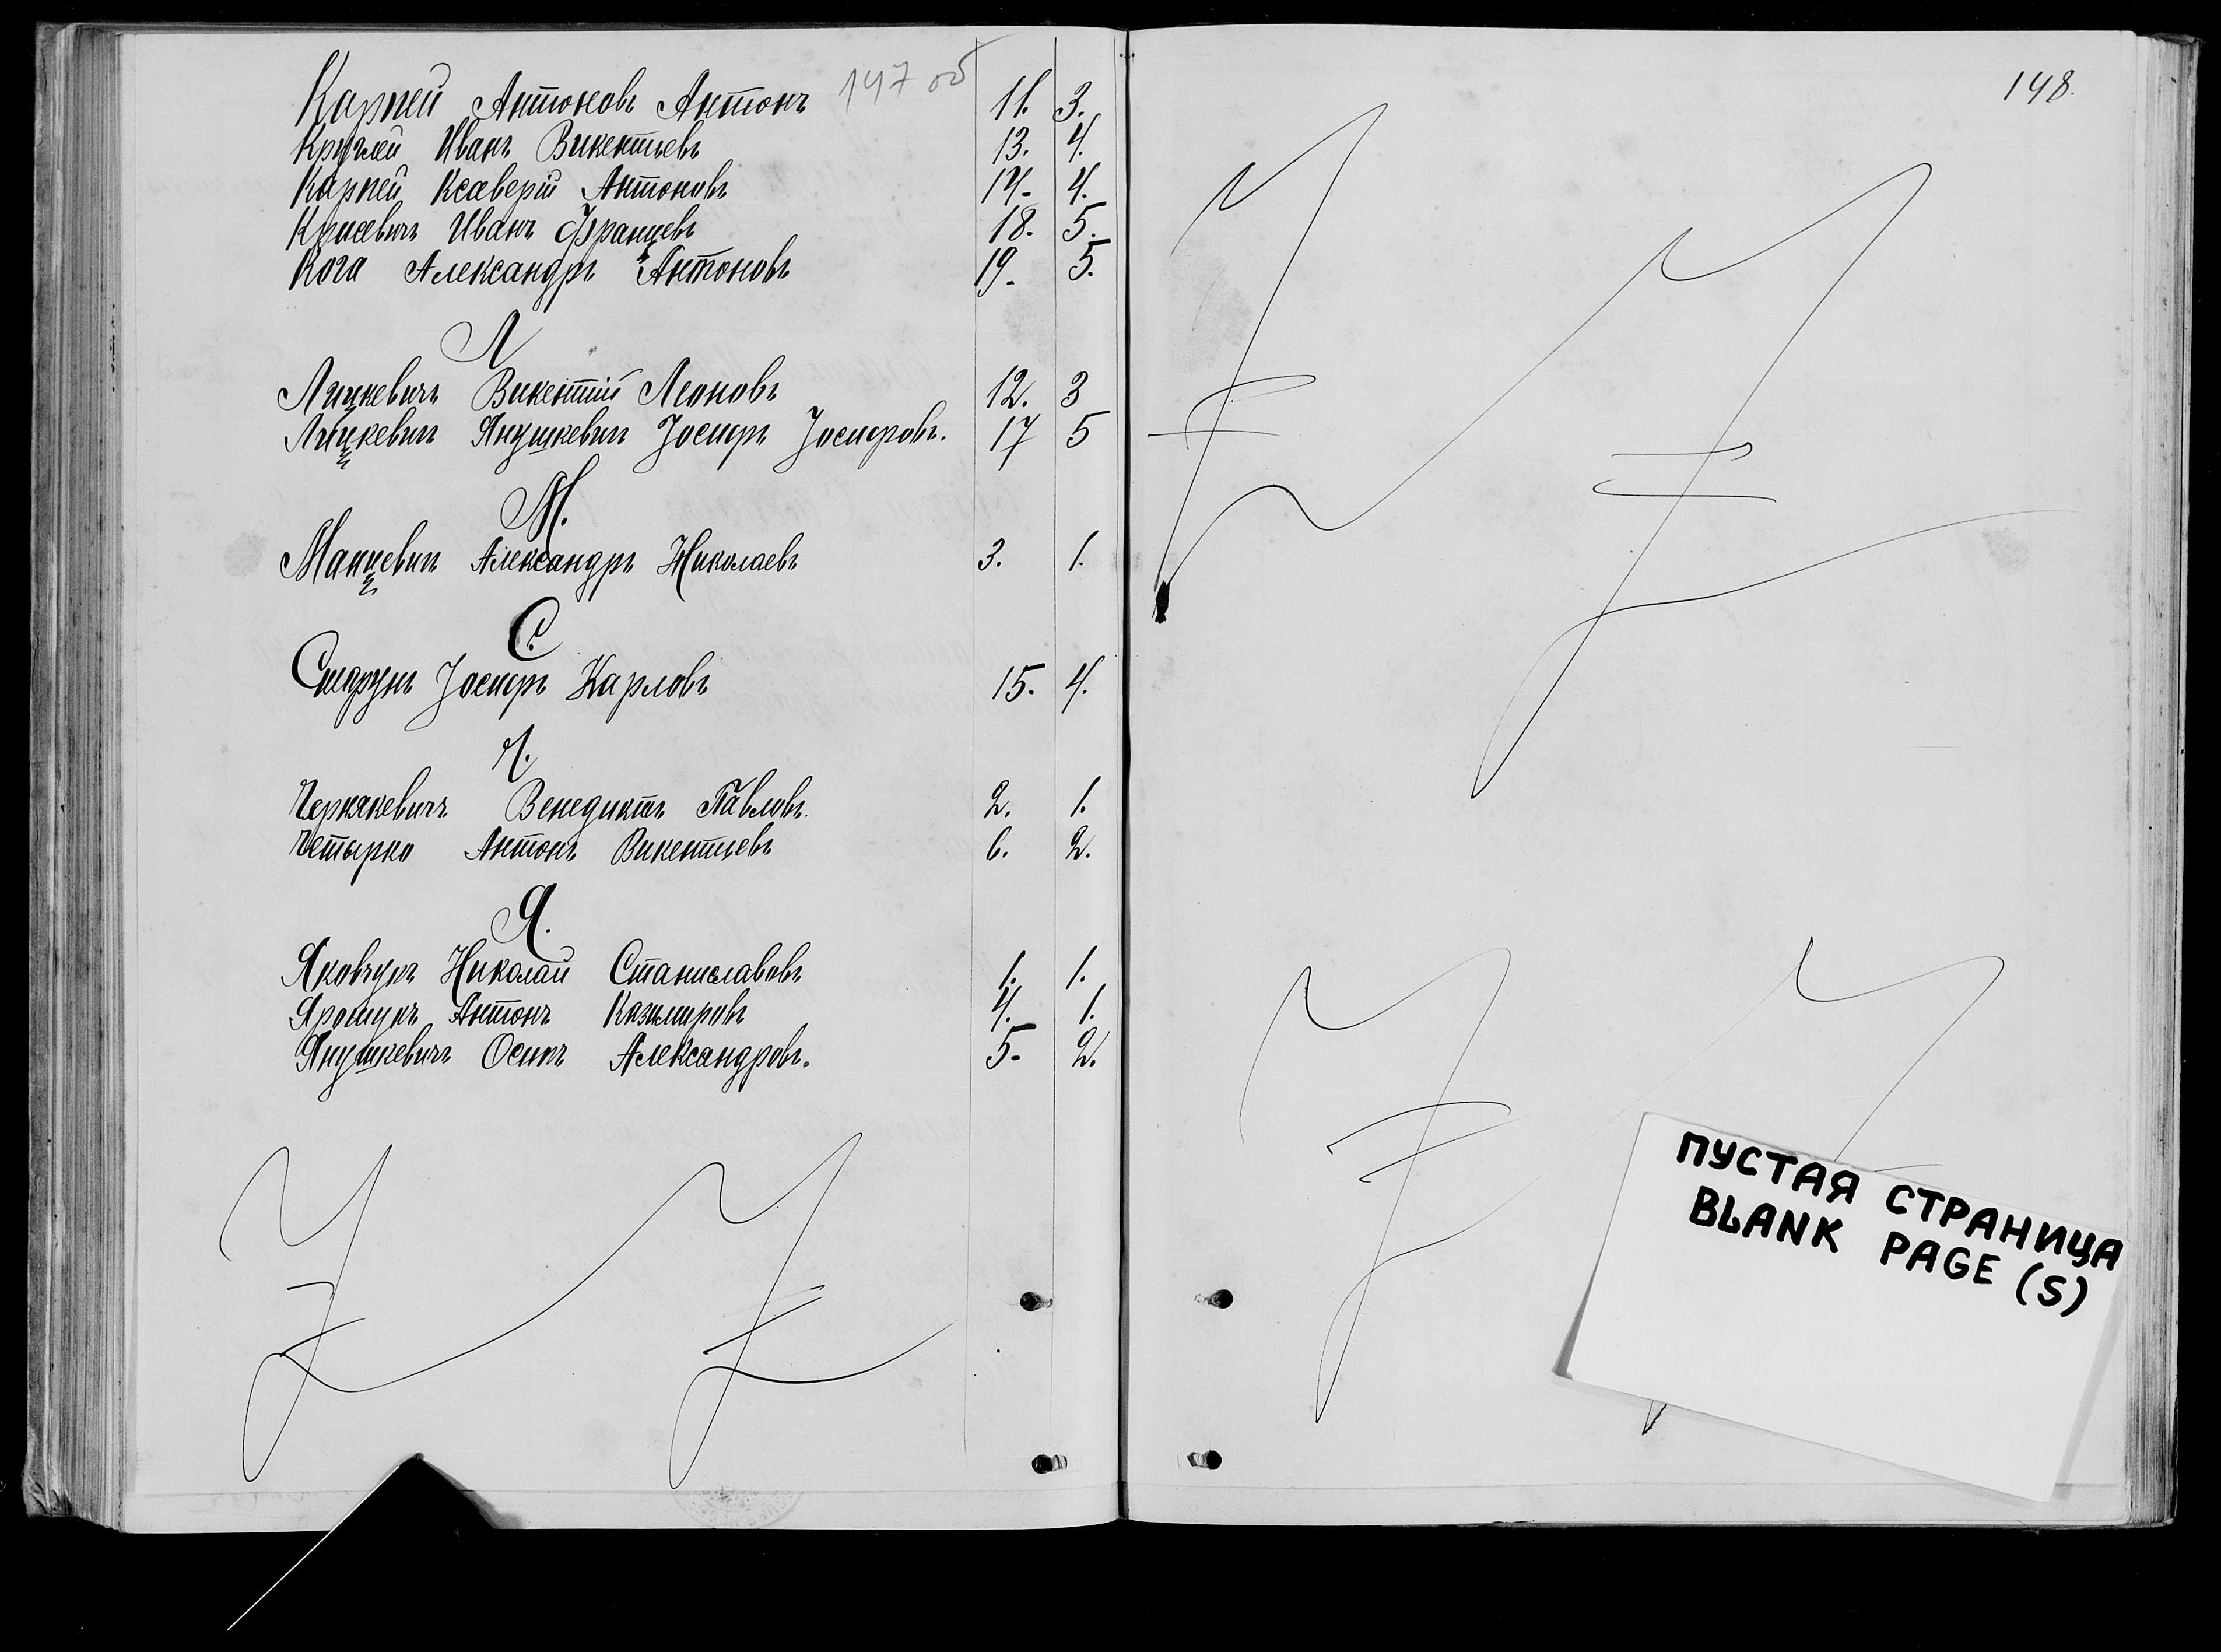 147 об
Карпей Антоновъ Антонъ 11. 3.
Круглей Иванъ Викентьевъ 13. 4.
Карпей Ксаверій Антоновъ 14. 4.
Крисевичъ Иванъ Францевъ 18. 5.
Кога Александръ Антоновъ 19. 5.
Л
Лицкевичъ Викентій Леоновъ 12. 3
Лицкевичъ Янушкевичъ Іосифъ Іосифовъ. 17 5
М.
Манцевичъ Александръ Николаевъ 3. 1.
С.
Іосифъ Карловъ 15. 4.
Ч.
Чернякевичъ Венедиктъ Павловъ. 2. 1.
Четырко Антонъ Викентьевъ 6. 2.
Я.
Яковчукъ Николай Станиславовъ 1. 1.
Ярошукъ Антонъ Казимировъ 4. 1.
Янушкевичъ Осипъ Александровъ. 5. 2.
148.
ПУСТАЯ СТРАНИЦА
BLANK PAGE (S)